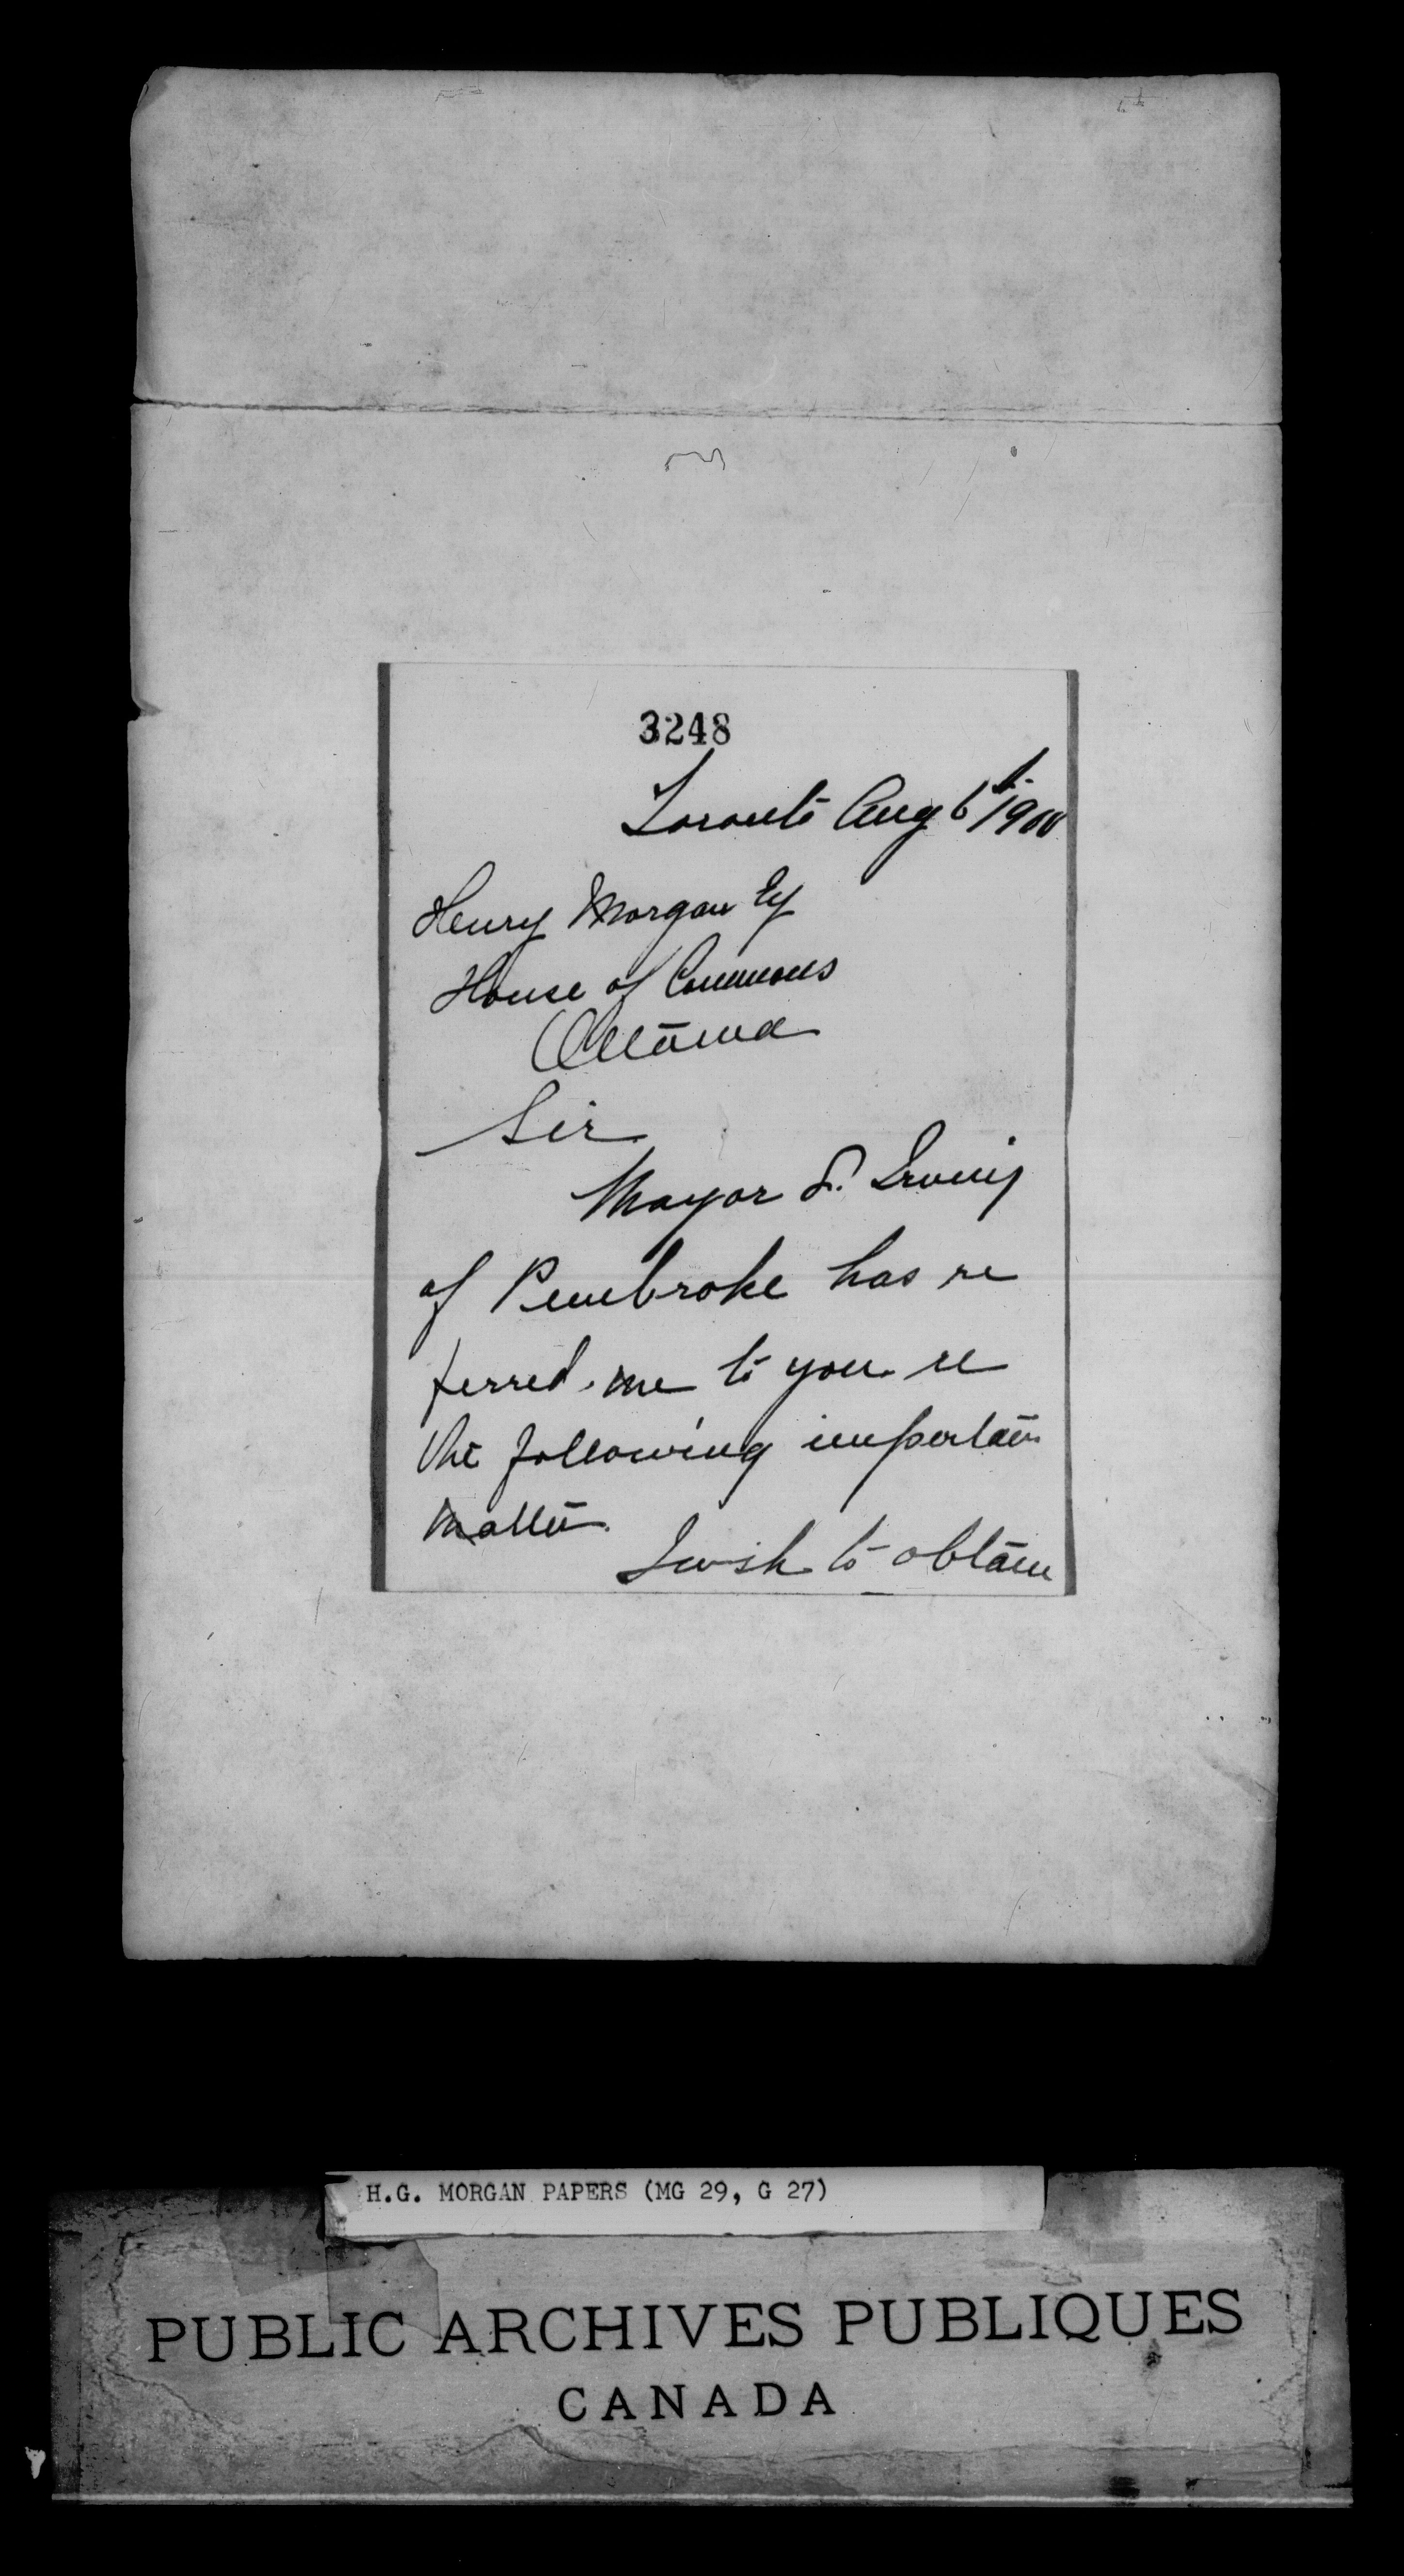 3248
Toronto Aug 6th 1900
Henry Morgan Esq
House of Commons
Ottawa
Sir
Mayor S. Irving
of Pembroke has re
ferred me to you re
the following important
matter.
I wish to obtain
H.G. MORGAN PAPERS (MG 29, G 27)
PUBLIC ARCHIVES PUBLIQUES
CANADA